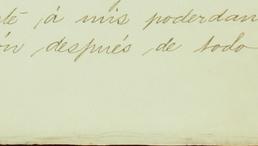 té á mis poderdan
ón después de todo